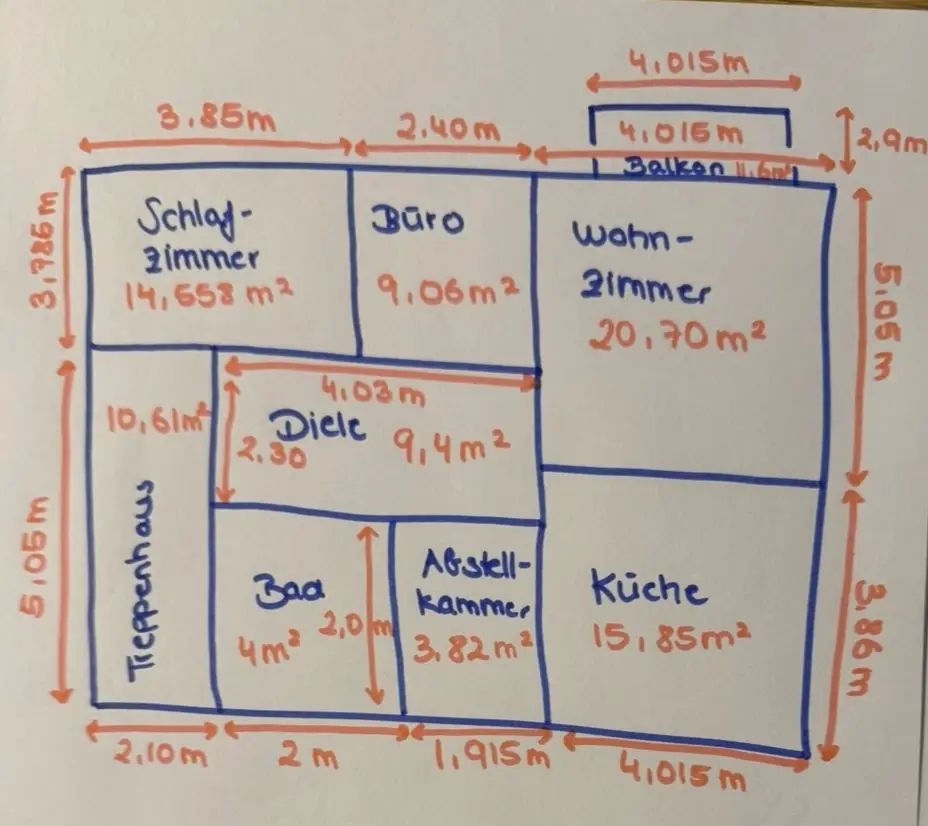 4,015m
3.85m
2.40m
4.015m
2,9m
Balkon 11,6m²
3,785m
Schlaf-
zimmer
14,558 m²
Büro
9.06m²
Wohn-
zimmer
20,70m²
5,05m
4.03m
10,61m²
Diele
2.30
9,4m²
5,05m
Treppenhaus
Bad
4m²
2,0m
Abstell-
kammer
3,82m²
Küche
15,85m²
3,86m
2,10m
2m
1,915m
4,015m